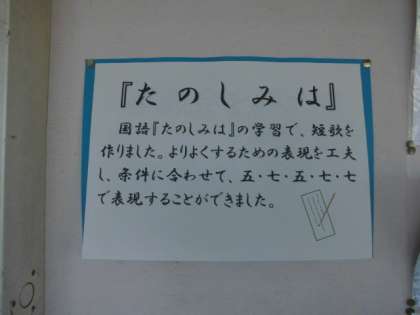 『たのしみは』
国語『たのしみは』の学習で、短歌を
作りました。よりよくするための表現を工夫
し、条件に合わせて、五・七・五・七・七
で表現することができました。